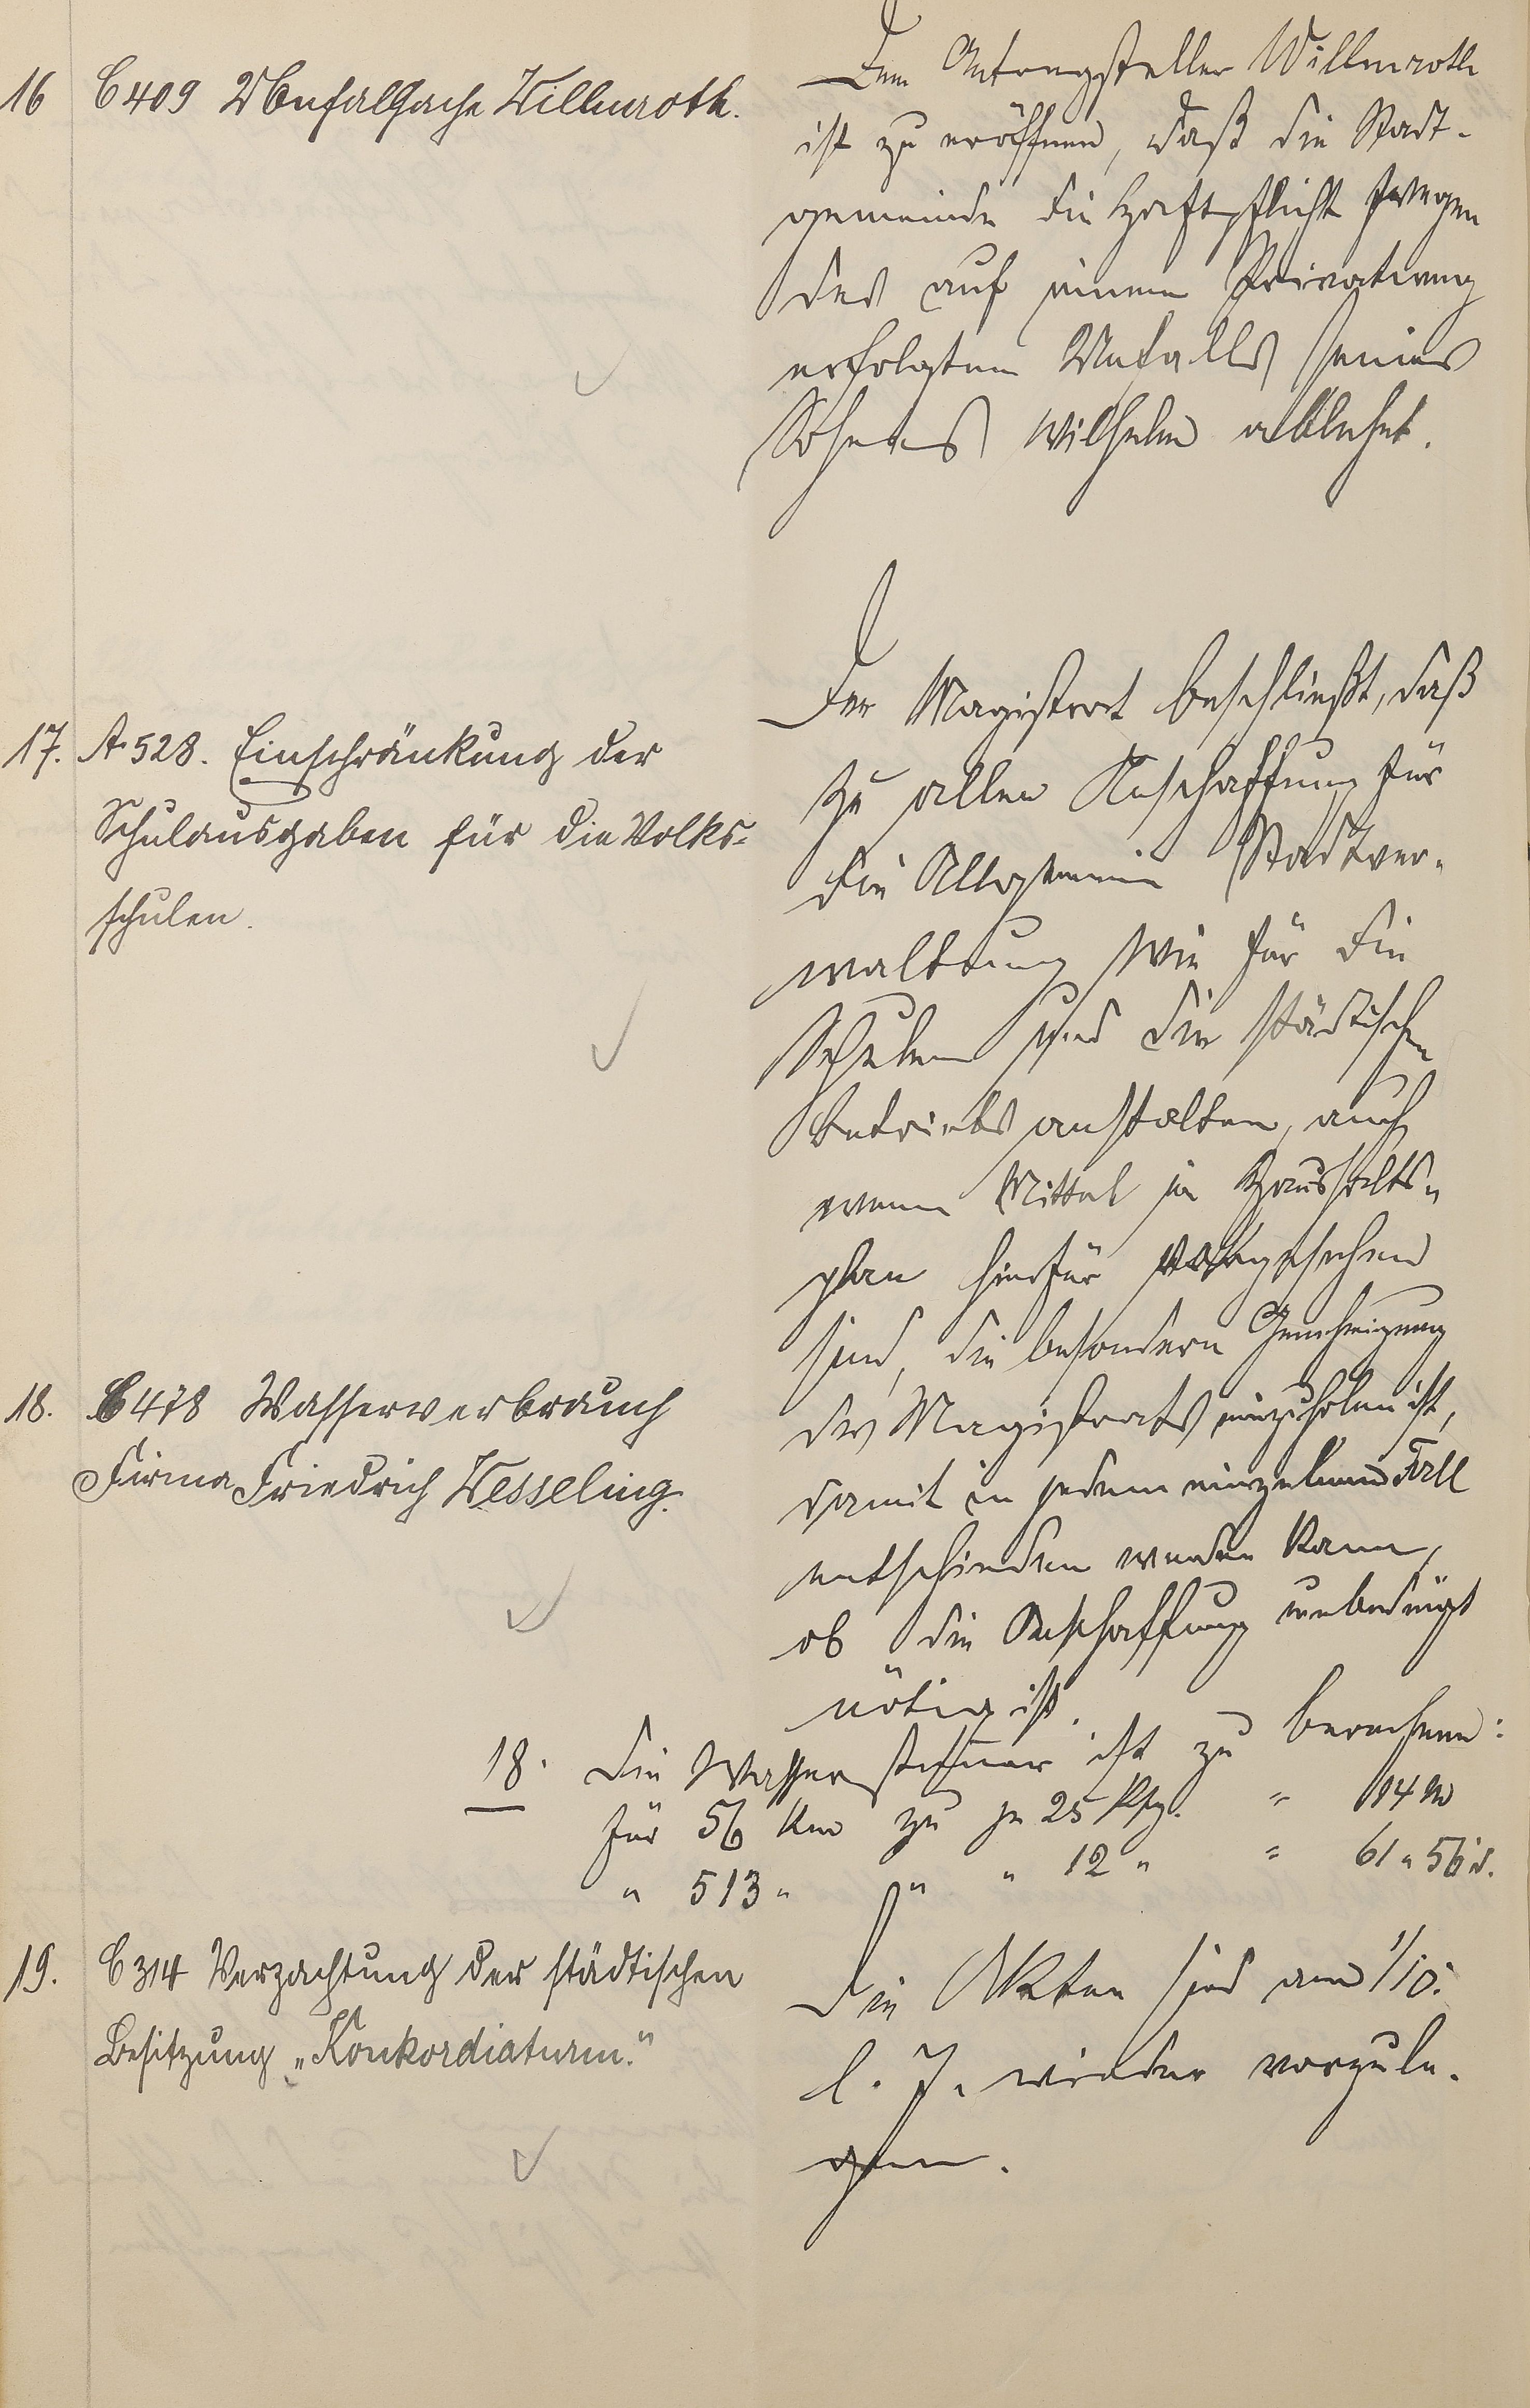 16 C 409 Unfallsache Willmroth.
Dem Antragsteller Willmroth
ist zu eröffnen, daß die Stadt-
gemeinde die Haftpflicht wegen
des auf einem Privatweg
erfolgten Unfalls seines
Sohnes Wilhelm ablehnt.
17. A 528. Einschränkung der
Schulausgaben für die Volks-
schulen.
Der Magistrat beschließt, daß
zu allen Anschaffung für
die Allgemeine Stadtver-
waltung wie für die
Schulen und die städtischen
Betriebsanstalten, auch
wenn Mittel im Haushalts-
plan hierfür vorgesehen
sind, die besondere Genehmigung
des Magistrats einzuholen ist,
damit in jedem einzelnen Fall
entschieden werden kann,
ob die Anschaffung unbedingt
nötig ist.
18. C 478 Wasserverbrauch
Firma Friedrich Wesseling.
18. Die Wassersteuer ist zu berechnen:
für 56 Kbm zu je 25 Pfg. = 14 M
" 513 " " " 12 " = 61 " 56 d.
19. C 314 Verpachtung der städtischen
Besitzung „Konkordiaturm."
Die Akten sind am 1/10.
l. J. wieder vorzule-
gen.